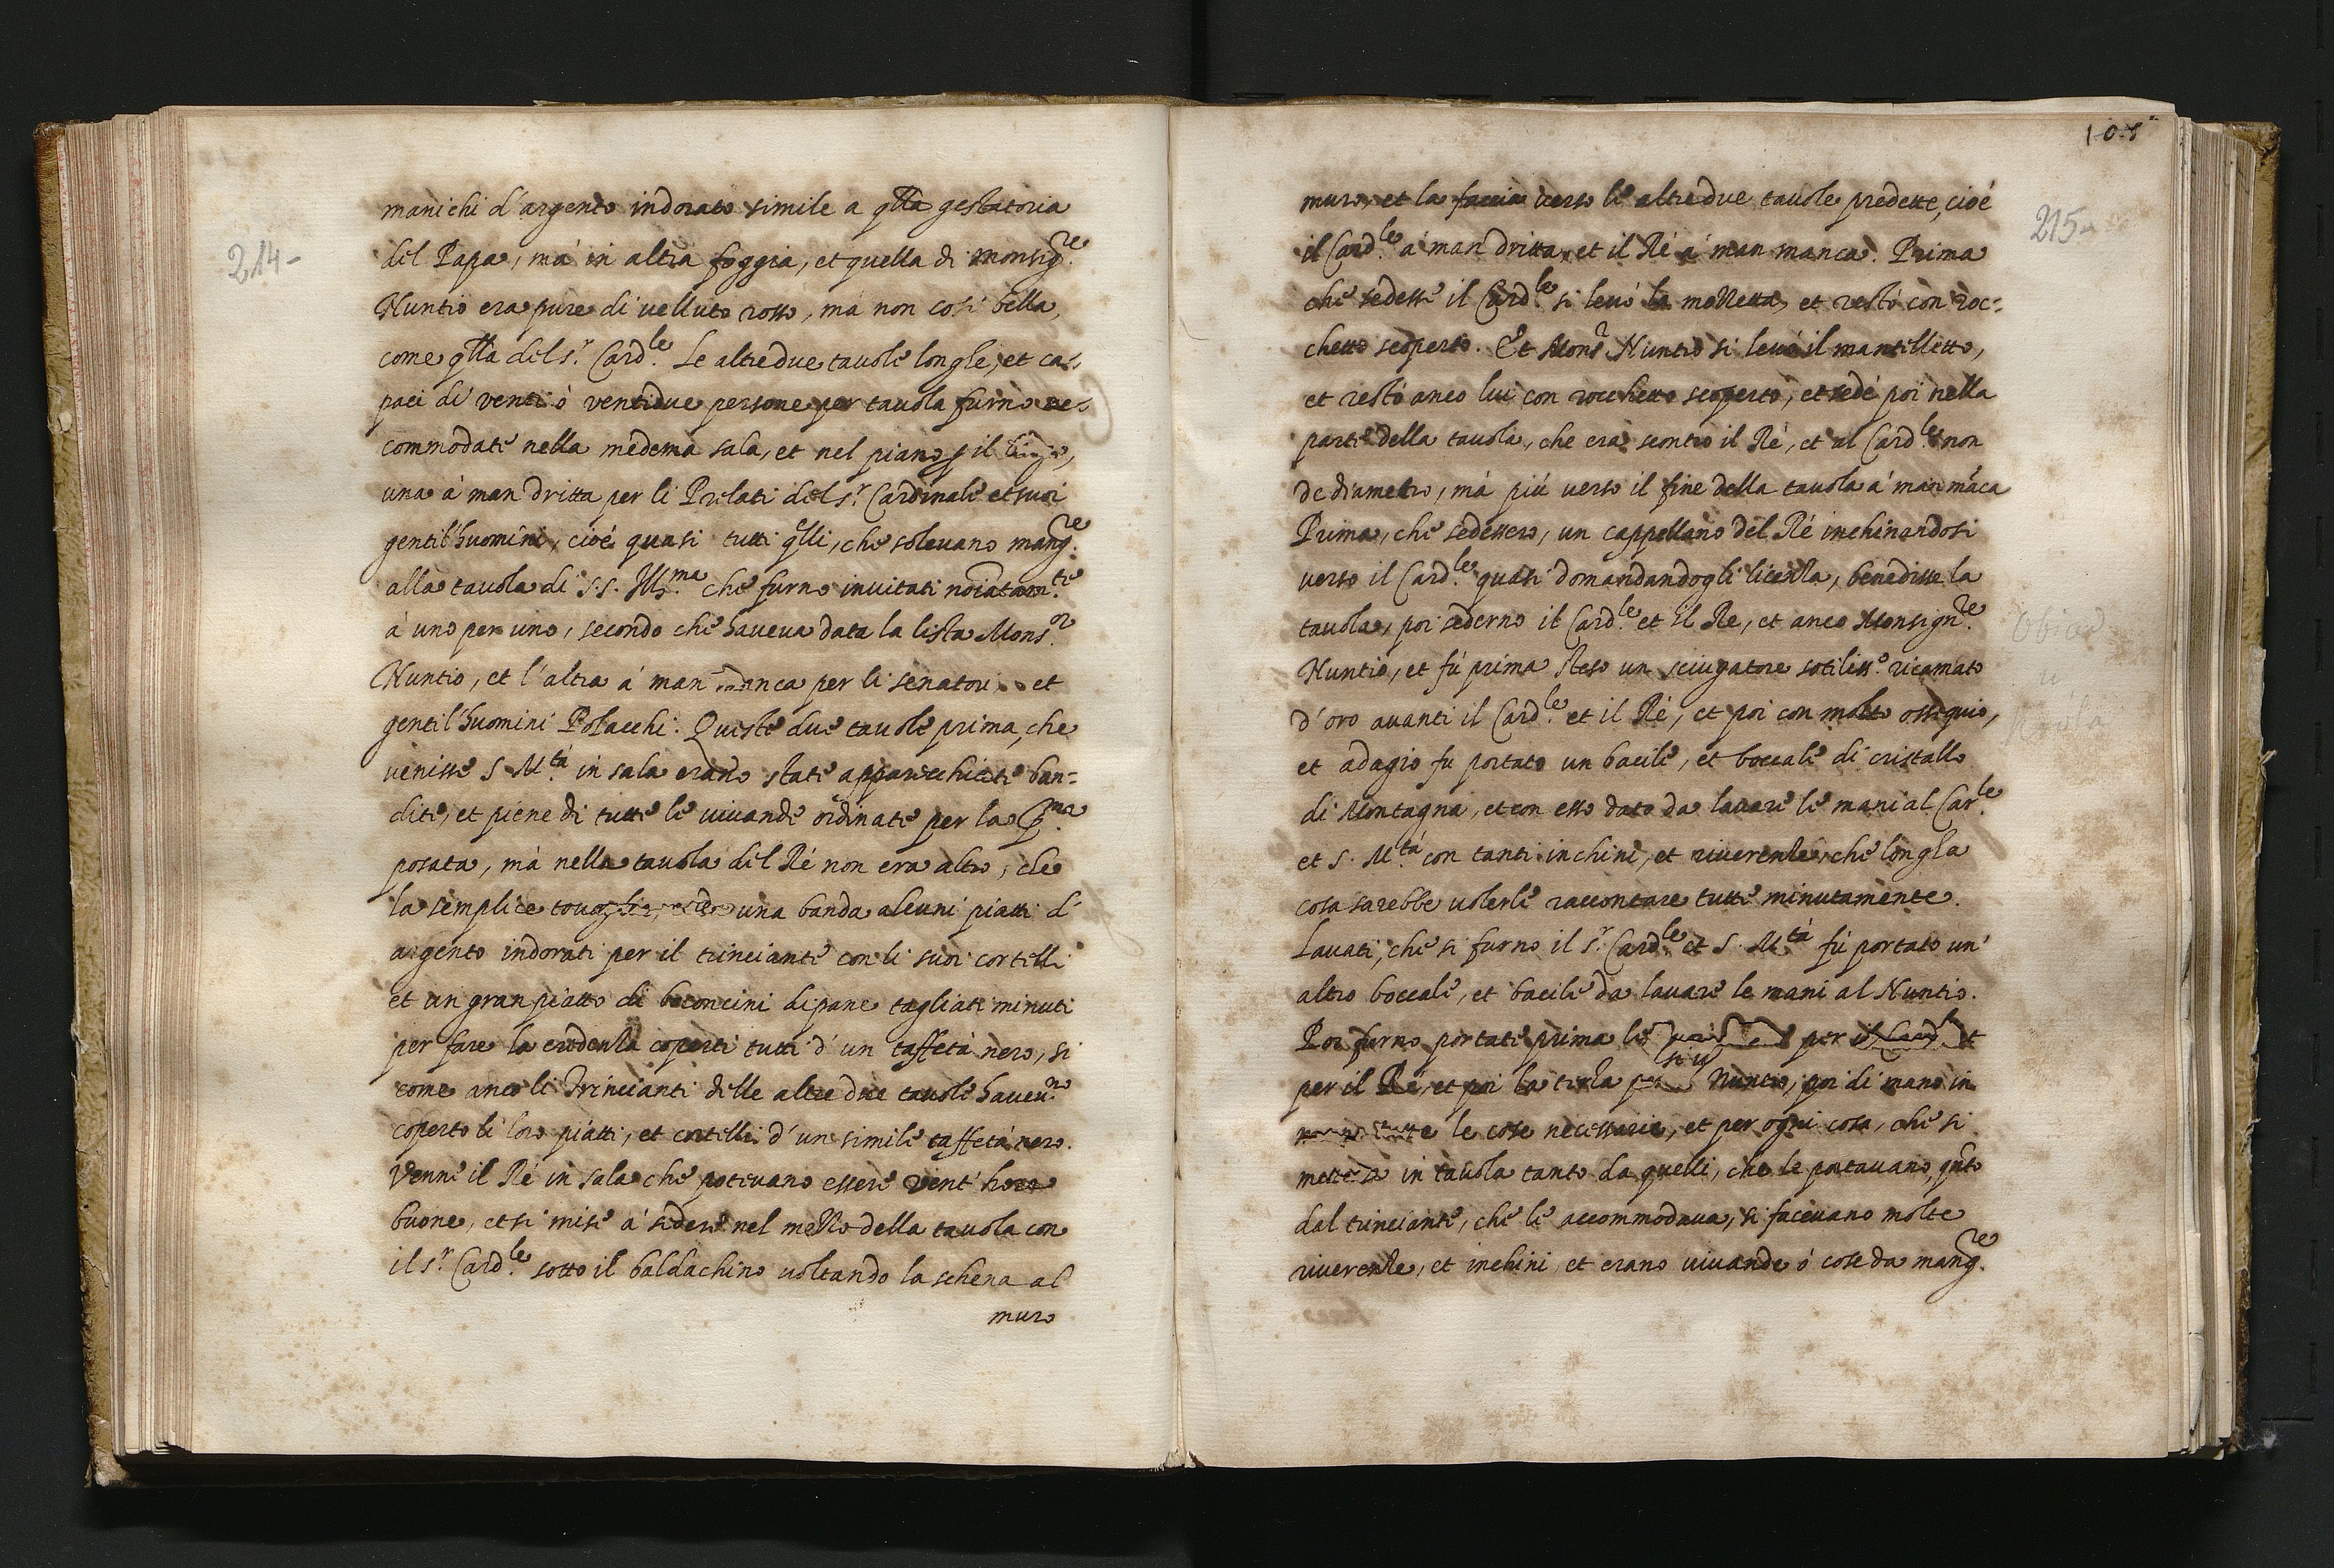 214-
manichi d'argento indorato simile a qlla gestatoria
del Papa, mà in altra foggia, et quella di Monsig.re
Nuntio era pure di velluto rosso, ma non così bella,
come qlla del s.r Card.le Le altre due tavole longhe, et ca-
paci di venti ò ventidue persone per tavola furno ac-
commodate nella medema sala, et nel piano il
una á man dritta per li Prelati del s.r Cardinale et suoi
gentil'huomini, cioé quasi tutti qlli, che solevano mang.re
alla tavola di s.s. Ill.ma che furno invitati
á uno per uno, secondo che haveva data la lista Mons.or
Nuntio, et l'altra á man manca per li senatori et
gentil'huomini Polacchi. Queste due tavole prima, che
venisse S M.tà in sala erano state apparecchiate ban-
dite, et piene di tutte le vivande ordinate per la p.ma
posata, mà nella tavola del Ré non era altro, che
la semplice una banda alcuni piatti d'
argento indorati per il trinciante con li suoi cortelli
et un gran piatto di boconcini di pane tagliati minuti
per fare la credenza coperti tutti d'un taffetà nero, si
come anco li Trincianti delle altre due tavole haveu.no
coperto li loro piatti, et cortelli d'un simile taffetá nero.
Venne il Ré in sala che potevano essere vent'hore
buone, et si mise á sedere nel mezzo della tavola con
il s.r Card.le sotto il baldachino voltando la schena al
muro
108
215-
muro, et la faccia verso le altre due tavole predette, cioé
il Card.le á man dritta, et il Ré á man manca. Prima
che sedesse il Card.le si levó la mozzetta, et restó con roc-
chetto scoperto. Et Mons.r Nuntio si levó il mantelletto,
et restó anco lui con rocchetto scoperto, et sedé poi nella
parte della tavola, che era scontro il Ré, et al Card.le non
de diametro, mà piú verso il fine della tavola á man máca
Prima, che sedessero, un cappellano del Ré inchinandosi
verso il Card.le quasi domandandogli licenza, benedisse la
tavola, poi sederno il Card.le et il Re, et anco Monsign.re
Nuntio, et fú prima steso un sciugatore sotiliss.o ricamato
d'oro avanti il Card.le et il Ré, et poi con molto ossequio,
et adagio fu portato un bacile, et boccale di cristallo
di Montagna, et con esso dato da lavare le mani al Car.le
et S. M.tá con tanti inchini, et riverenze, che longha
cosa sarebbe volerle raccontare tutte minutamente.
Lavati, che si furno il s.r Card.le et S. M.tá fú portato un'
altro boccale, et bacile da lavare le mani al Nuntio.
Poi furno portate prima le per il Card.l et
per il Ré, et poi la terza Nuntio, poi di mano in
le cose necessarie, et per ogni cosa, che si
in tavola tanto da quelli, che le portavano, qnto
dal trinciante, che le accommodava, si facevano molte
riverenze, et inchini, et erano vivande ó cose da mang.re